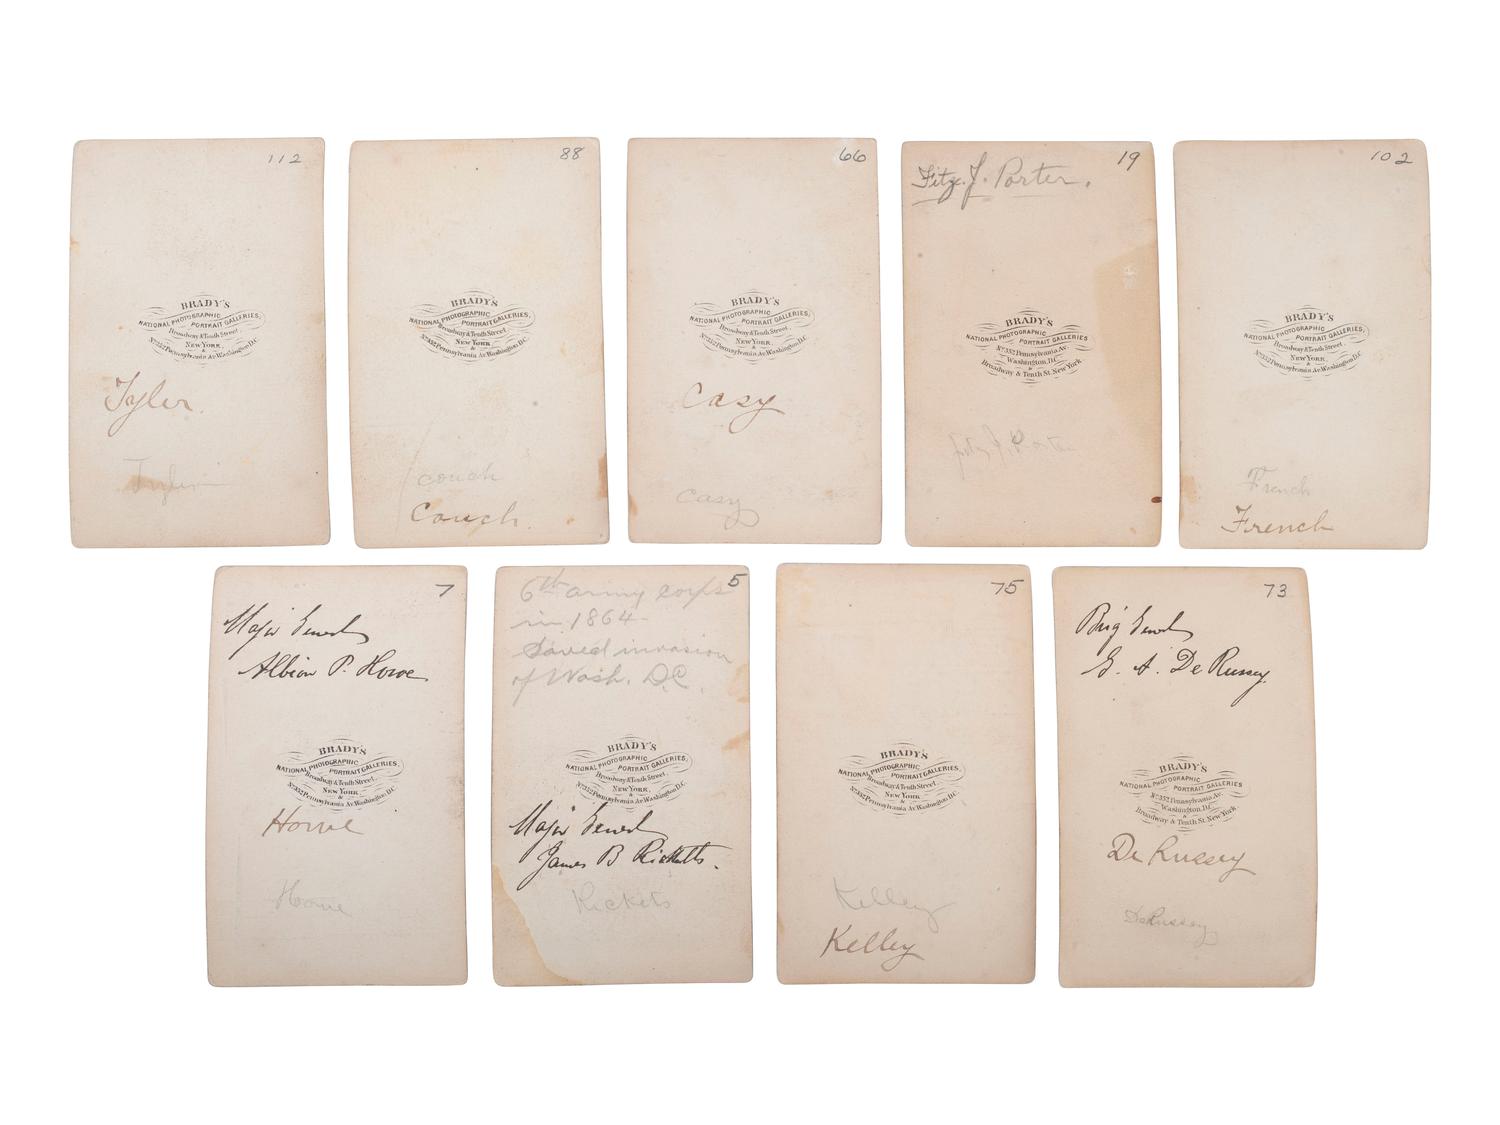 112
BRADY'S
NATIONAL PHOTOGRAPHIC
PORTRAIT GALLERIES,
Broadway & Tenth Street,
NEW YORK
&
No. 352 Pennsylvania Av. Washington D.C.
Tyler.
Tyler
88
BRADY'S
NATIONAL PHOTOGRAPHIC
PORTRAIT GALLERIES,
Broadway & Tenth Street,
NEW YORK
&
No. 352 Pennsylvania Av. Washington, D.C.
couch
Couch.
66
BRADY'S
NATIONAL PHOTOGRAPHIC
PORTRAIT GALLERIES,
Broadway & Tenth Street,
NEW YORK
&
No. 352 Pennsylvania Av. Washington D.C.
Casy
Casy
19
Fitz. J. Porter.
BRADY'S
NATIONAL PHOTOGRAPHIC
PORTRAIT GALLERIES
No. 352 Pennsylvania Av.
Washington, D.C.
&
Broadway & Tenth St. New York
Fitz J. Porter
102
BRADY'S
NATIONAL PHOTOGRAPHIC
PORTRAIT GALLERIES,
Broadway & Tenth Street,
NEW YORK
&
No. 352 Pennsylvania Av. Washington D.C.
French
French
7
Major General
Albion P. Howe.
BRADY'S
NATIONAL PHOTOGRAPHIC
PORTRAIT GALLERIES,
Broadway & Tenth Street,
NEW YORK
&
No. 352 Pennsylvania Av. Washington D.C.
Howe
Howe
5
6th army corps
in 1864-
Saved invasion
of Wash. D.C.
BRADY'S
NATIONAL PHOTOGRAPHIC
PORTRAIT GALLERIES,
Broadway & Tenth Street,
NEW YORK
&
No. 352 Pennsylvania Av. Washington D.C.
Major General
James B Ricketts.
Rickets
75
BRADY'S
NATIONAL PHOTOGRAPHIC
PORTRAIT GALLERIES,
Broadway & Tenth Street,
NEW YORK
&
No. 352 Pennsylvania Av. Washington D.C.
Kelley
Kelley
73
Brig General
G. A. De Russey.
BRADY'S
NATIONAL PHOTOGRAPHIC
PORTRAIT GALLERIES
No. 352 Pennsylvania Av.
Washington, D.C.
&
Broadway & Tenth St. New York
De Russey
DeRussey